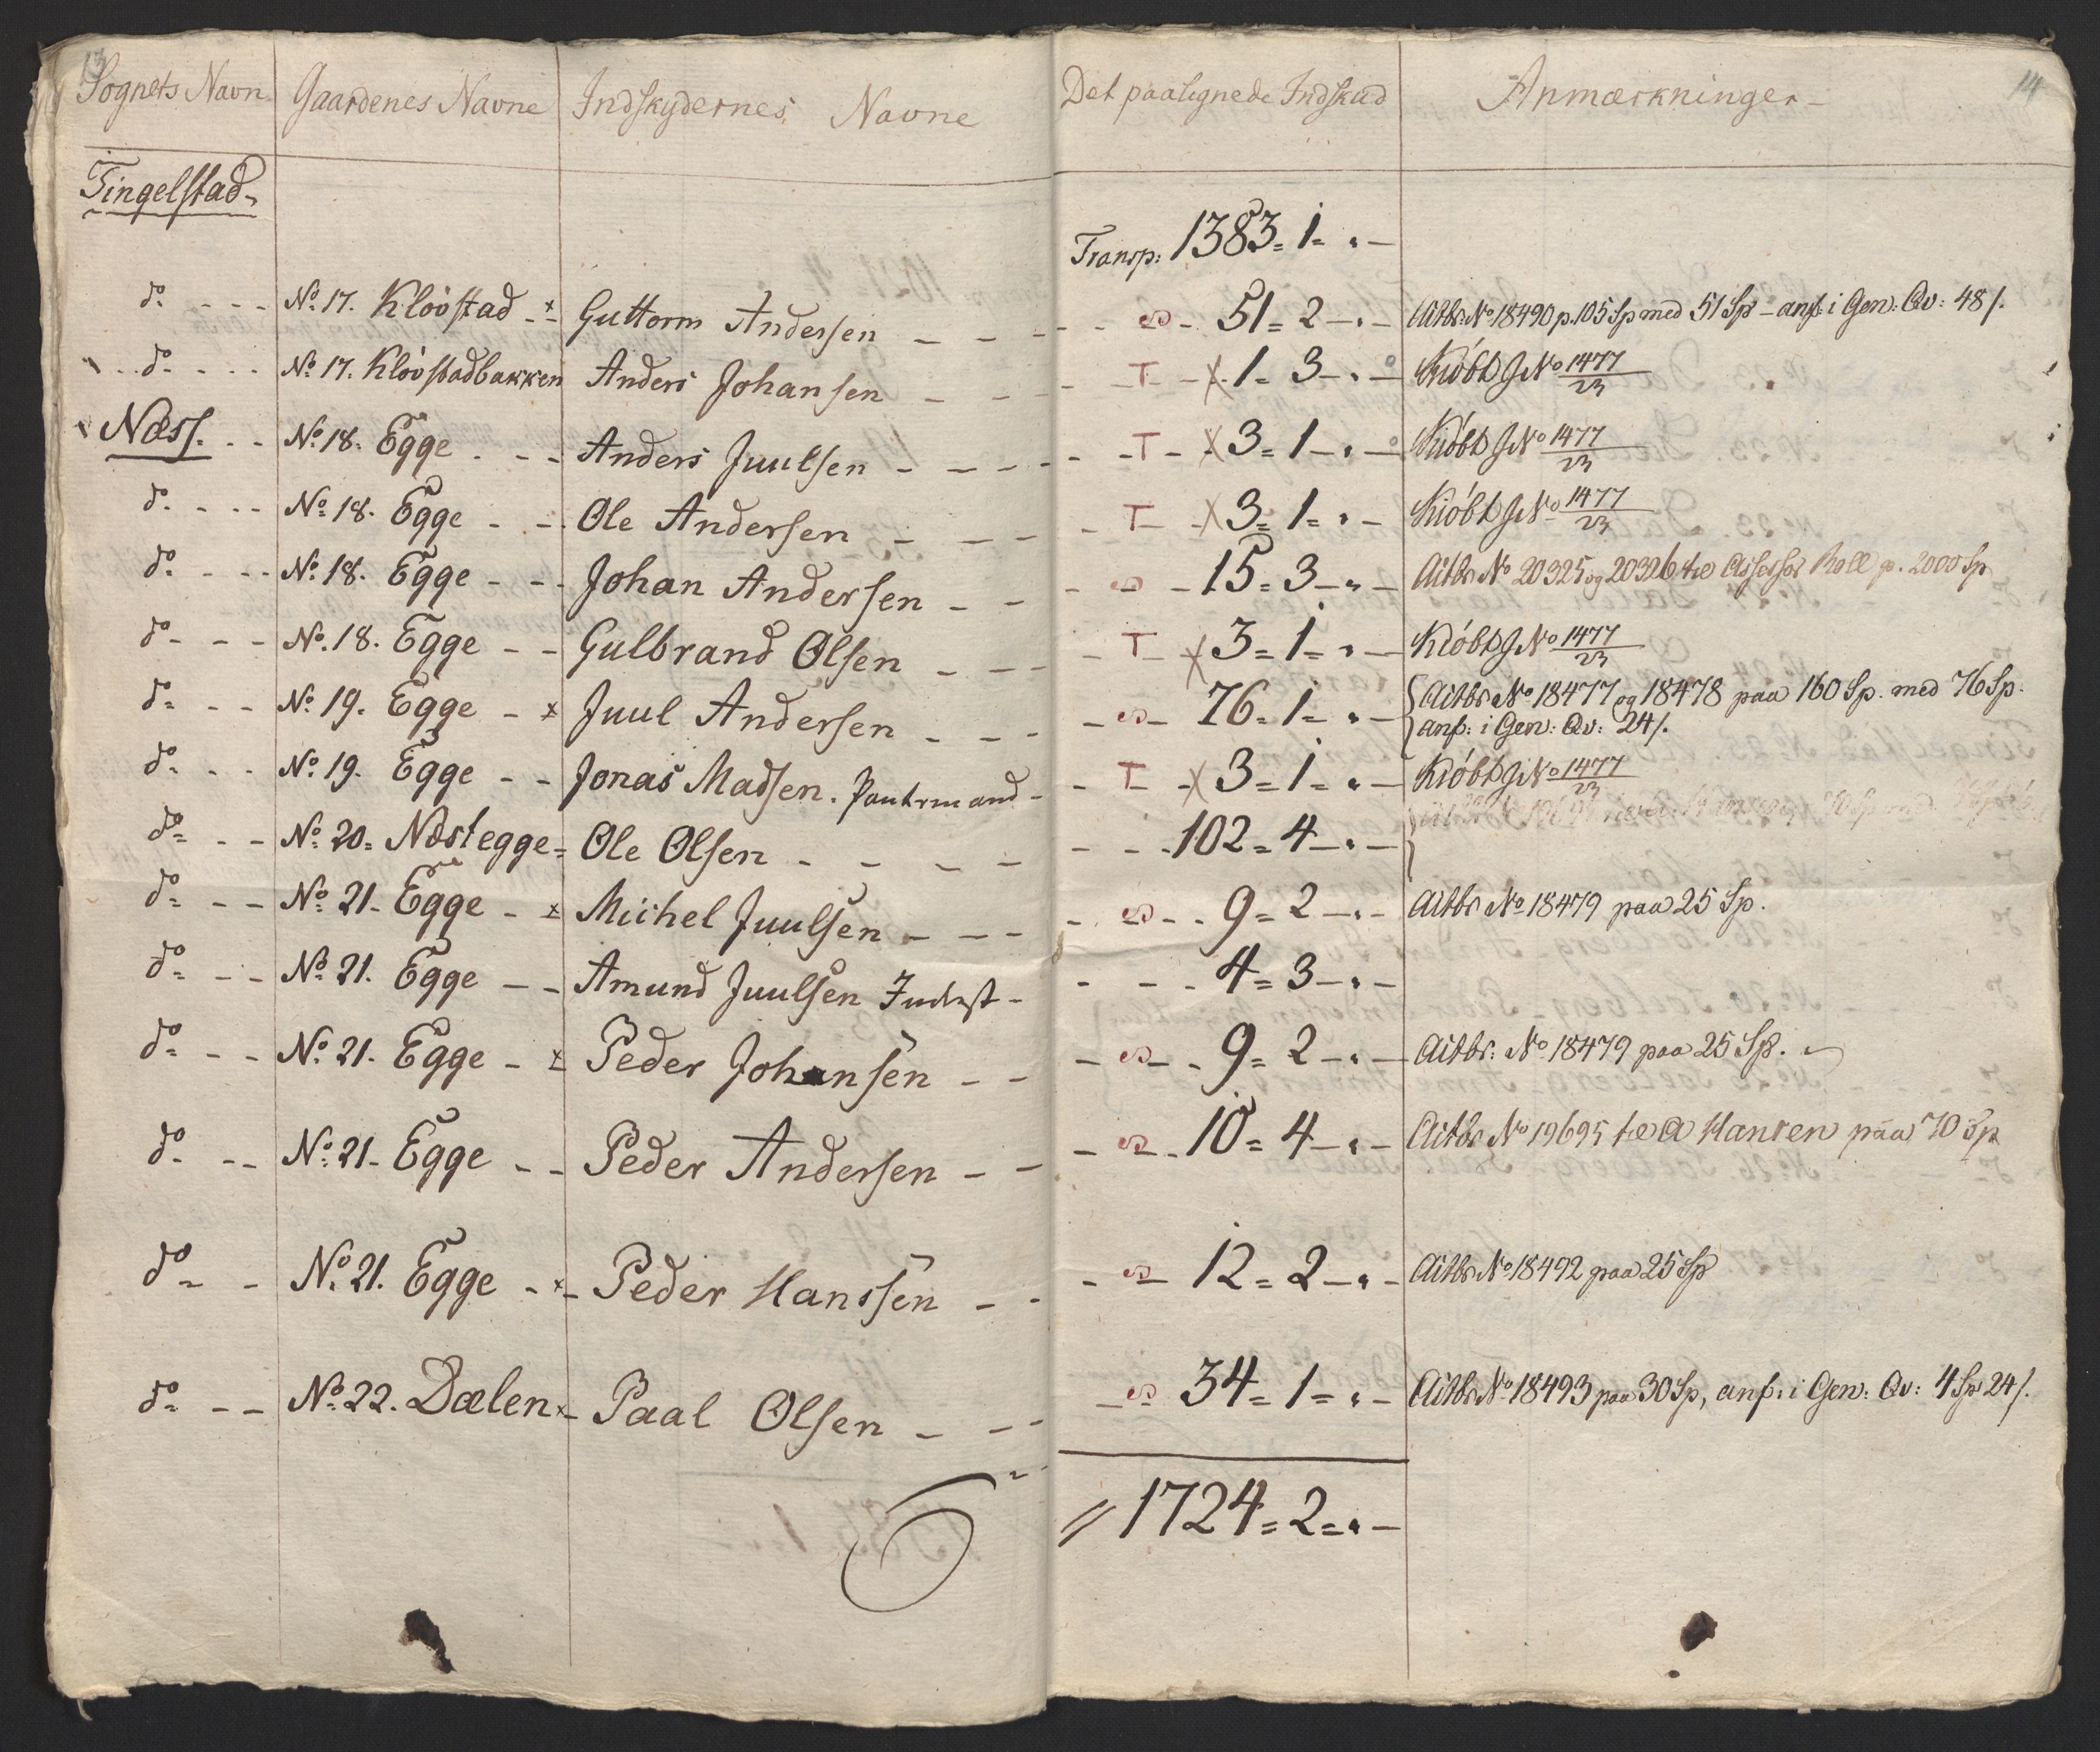 13
14
Sognets Navn Gaardenes Navne Indskydernes Navne Det paalignede Indskud Anmærkninger -
Tingelstad-
Transp: 1383 = 1 = " -
do - - - No 17. Kløvstad - x Guttorm Andersen - - - 51 = 2 - " - Actbr. No 18490 p. 105 Sp med 51 Sp - anf: i Gen: Qv: 48 /.
do - - - No 17. Kløvstadbakken Anders Johansen - - - T - x 1 = 3 - " - Kiøbt JNo 1477/23
Næss. - - No 18. Egge - - - Anders Juulsen - - - - T - x 3 = 1 - " - Kiøbt JNo 1477/23
do - - - No 18. Egge - - Ole Andersen - - - T - x 3 = 1 = " - Kiøbt JNo 1477/23
do - - - No 18. Egge - - - Johan Andersen - - - 15 = 3 - " - Actbr No 20325 og 20326 Assessor Roll p. 2000 Sp
do - - - No 18. Egge - - Gulbrand Olsen - - - T - x 3 = 1 = " - Kiøbt JNo 1477/23
do - - - No 19. Egge - x Juul Andersen - - - 76 = 1 = " - { Actbr No 18477 og 18478 paa 160 Sp. med 76 Sp.
anf: i Gen: Qv: 24 /.
do - - - No 19. Egge - - Jonas Madsen. - T - x 3 = 1 = " - Kiøbt JNo 1477/23
do - - No 20 = Næstegge = Ole Olsen - - - - - - - 102 = 4 - " - {
do - - No 21 - Egge - x Michel Juulsen - - - 9 = 2 - " - Actbr No 18479 paa 25 Sp.
do - - No 21. Egge - - Amund Juulsen Inderst - - - - 4 = 3 - " -
do - - No 21. Egge - x Peder Johansen - - - 9 = 2 - " - Actbr: No 18479 paa 25 Sp.
do - - No 21 - Egge - - Peder Andersen - - - 10 = 4 - " - Actbr No 19695 A Hansen paa 70 Sp
do - - No 21. Egge - x - Peder Hanssen - - - 12 = 2 - " - Actbr No 18492 paa 25 Sp
do - - No 22. Dælen x - Paal Olsen - - - 34 = 1 = " - Actbr No 18493 paa 30 Sp, anf: i Gen: Qv: 4 Sp 24 /.
// 1724 = 2 = " -